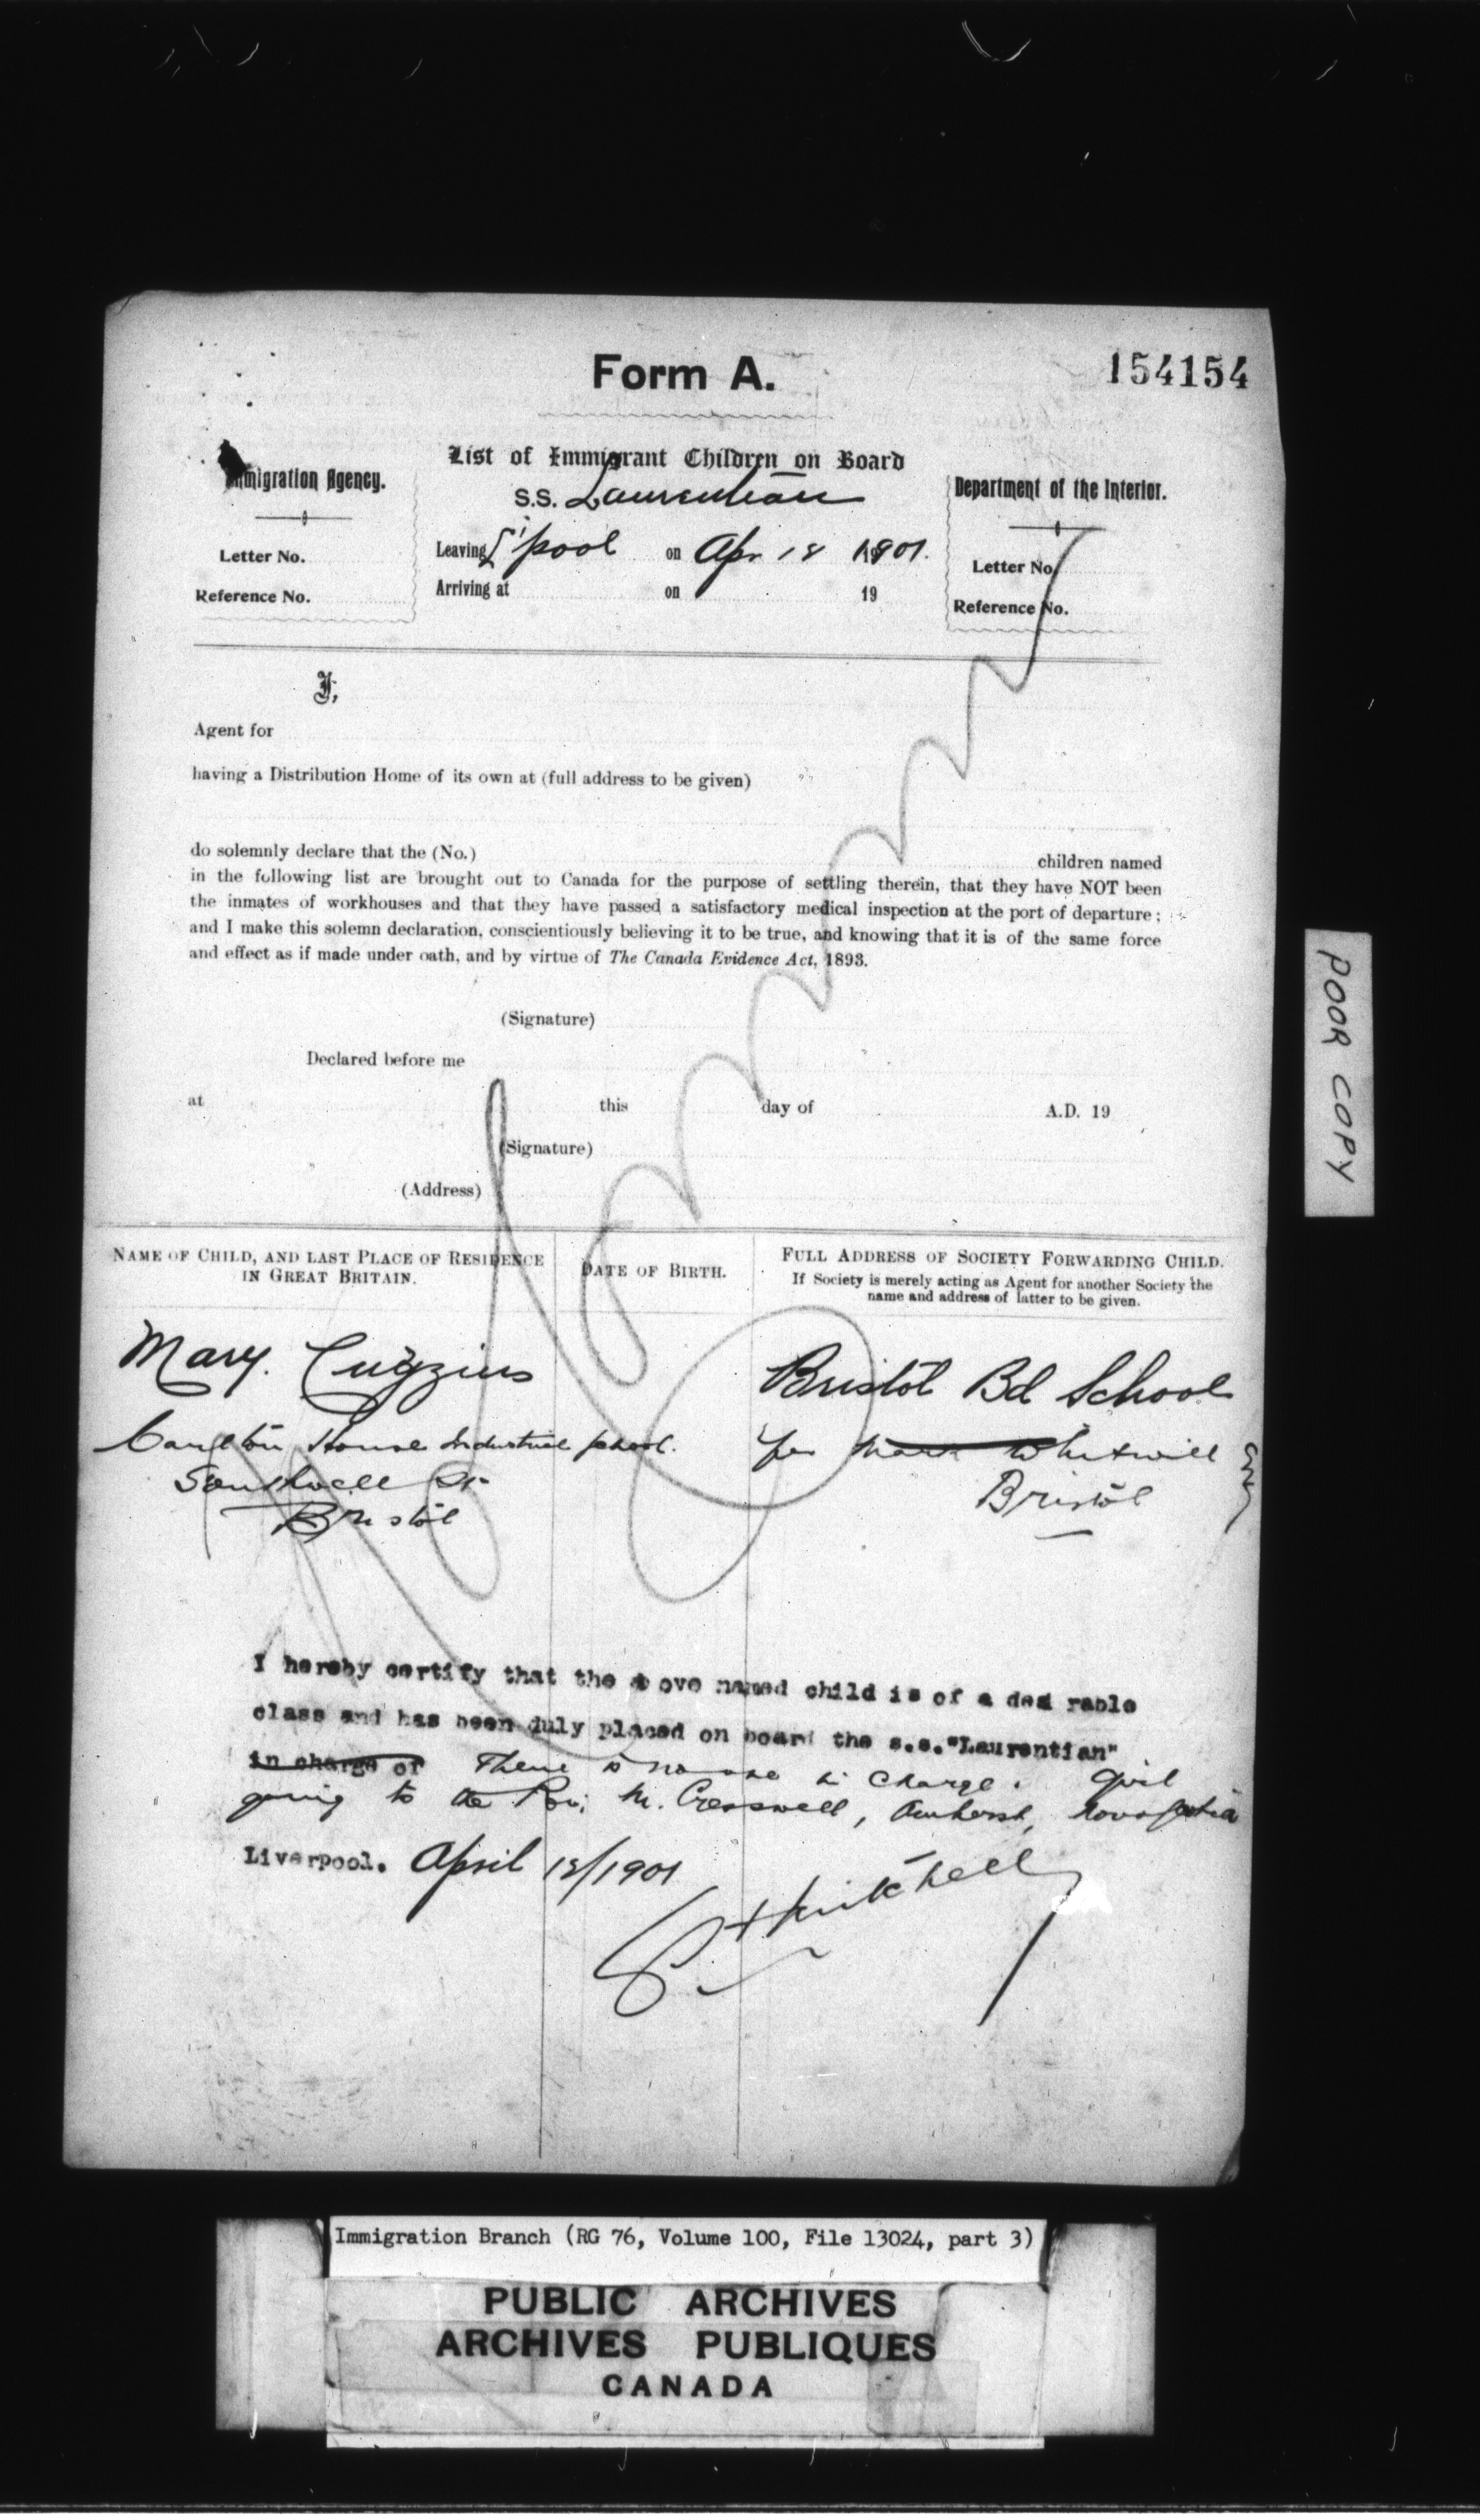 Form A.
154154
List of Immigrant Children on Board
S.S. Laurentian
Immigration Agency.
Letter No.
Reference No.
Leaving L'pool on Apr 18 1901.
Arriving at on 19
Department of the Interior.
Letter No.
Reference No.
I,
Agent for
having a Distribution Home of its own at (full address to be given)
do solemnly declare that the (No.) children named
in the following list are brought out to Canada for the purpose of settling therein, that they have NOT been
the inmates of workhouses and that they have passed a satisfactory medical inspection at the port of departure;
and I make this solemn declaration, conscientiously believing it to be true, and knowing that it is of the same force
and effect as if made under oath, and by virtue of The Canada Evidence Act, 1893.
(Signature)
Declared before me
at this day of A.D. 19
(Signature)
(Address)
NAME OF CHILD, AND LAST PLACE OF RESIDENCE
IN GREAT BRITAIN.
DATE OF BIRTH.
FULL ADDRESS OF SOCIETY FORWARDING CHILD.
If Society is merely acting as Agent for another Society the
name and address of latter to be given.
Mary.
Carlton House Industrial School.
Southwell St
Bristol
Bristol Bd School
per Mark Whitwill Esq
Bristol
I hereby certify that the above named child is of a desirable
class and has been duly placed on board the s.s."Laurentian"
in charge of There is no one in charge. Girl
going to the Rev; M. Cresswell, Amherst, Nova Scotia
Liverpool. April 18/1901
Mitchell
POOR COPY
Immigration Branch (RG 76, Volume 100, File 13024, part 3)
PUBLIC ARCHIVES
ARCHIVES PUBLIQUES
CANADA